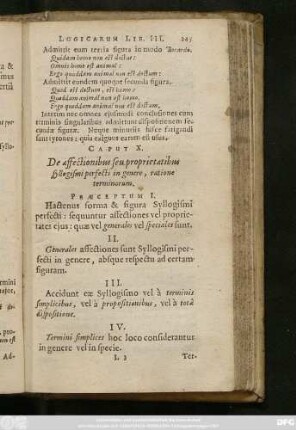 LOGICARUM LIB. III. 245
Admittit eam tertia figura in modo Bocardo.
Quidam homo non est doctus:
Omnis homo est animal:
Ergo quoddam animal non est doctum:
Admittit eandem quoque secunda figura.
Quod est doctum, est homo:
Quoddam animal non est homo.
Ergo quoddam animal non est doctum.
Interim nec omnes ejusmodi conclusiones cum
terminis singularibus admittunt dispositionem se-
cundæ figuræ. Neque minutiis hisce fatigandi
sunt tyrones: quia exiguus earum est usus.
CAPUT X.
De affectionibus seu proprietatibus
syllogismi perfecti in genere, ratione
terminorum.
PRÆCEPTUM I.
Hactenus forma & figura Syllogismi
perfecti: sequuntur affectiones vel proprie-
tates ejus: quæ vel generales vel speciales sunt.
II.
Generales affectiones sunt Syllogismi per-
fecti in genere, absque respectu ad certam
figuram.
III.
Accidunt eæ Syllogismo vel à terminis
simplicibus, vel à propositionibus, vel à totâ
dispositione.
IV.
Termini simplices hoc loco considerantur
in genere vel in specie.
L 3 Ter-